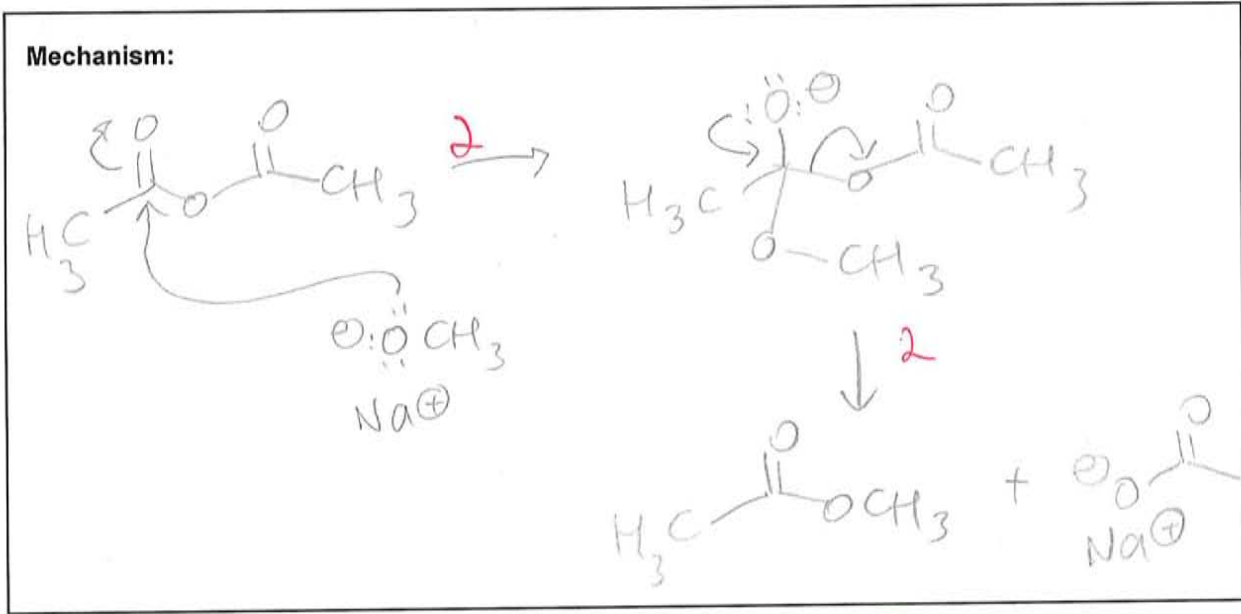 Mechanism:
O O
H3C O CH3
⊖:Ö CH3
Na⊕
2
:Ö:⊖ O
H3C O CH3
O–CH3
2
O
H3C OCH3
+
O
⊖O
Na⊕